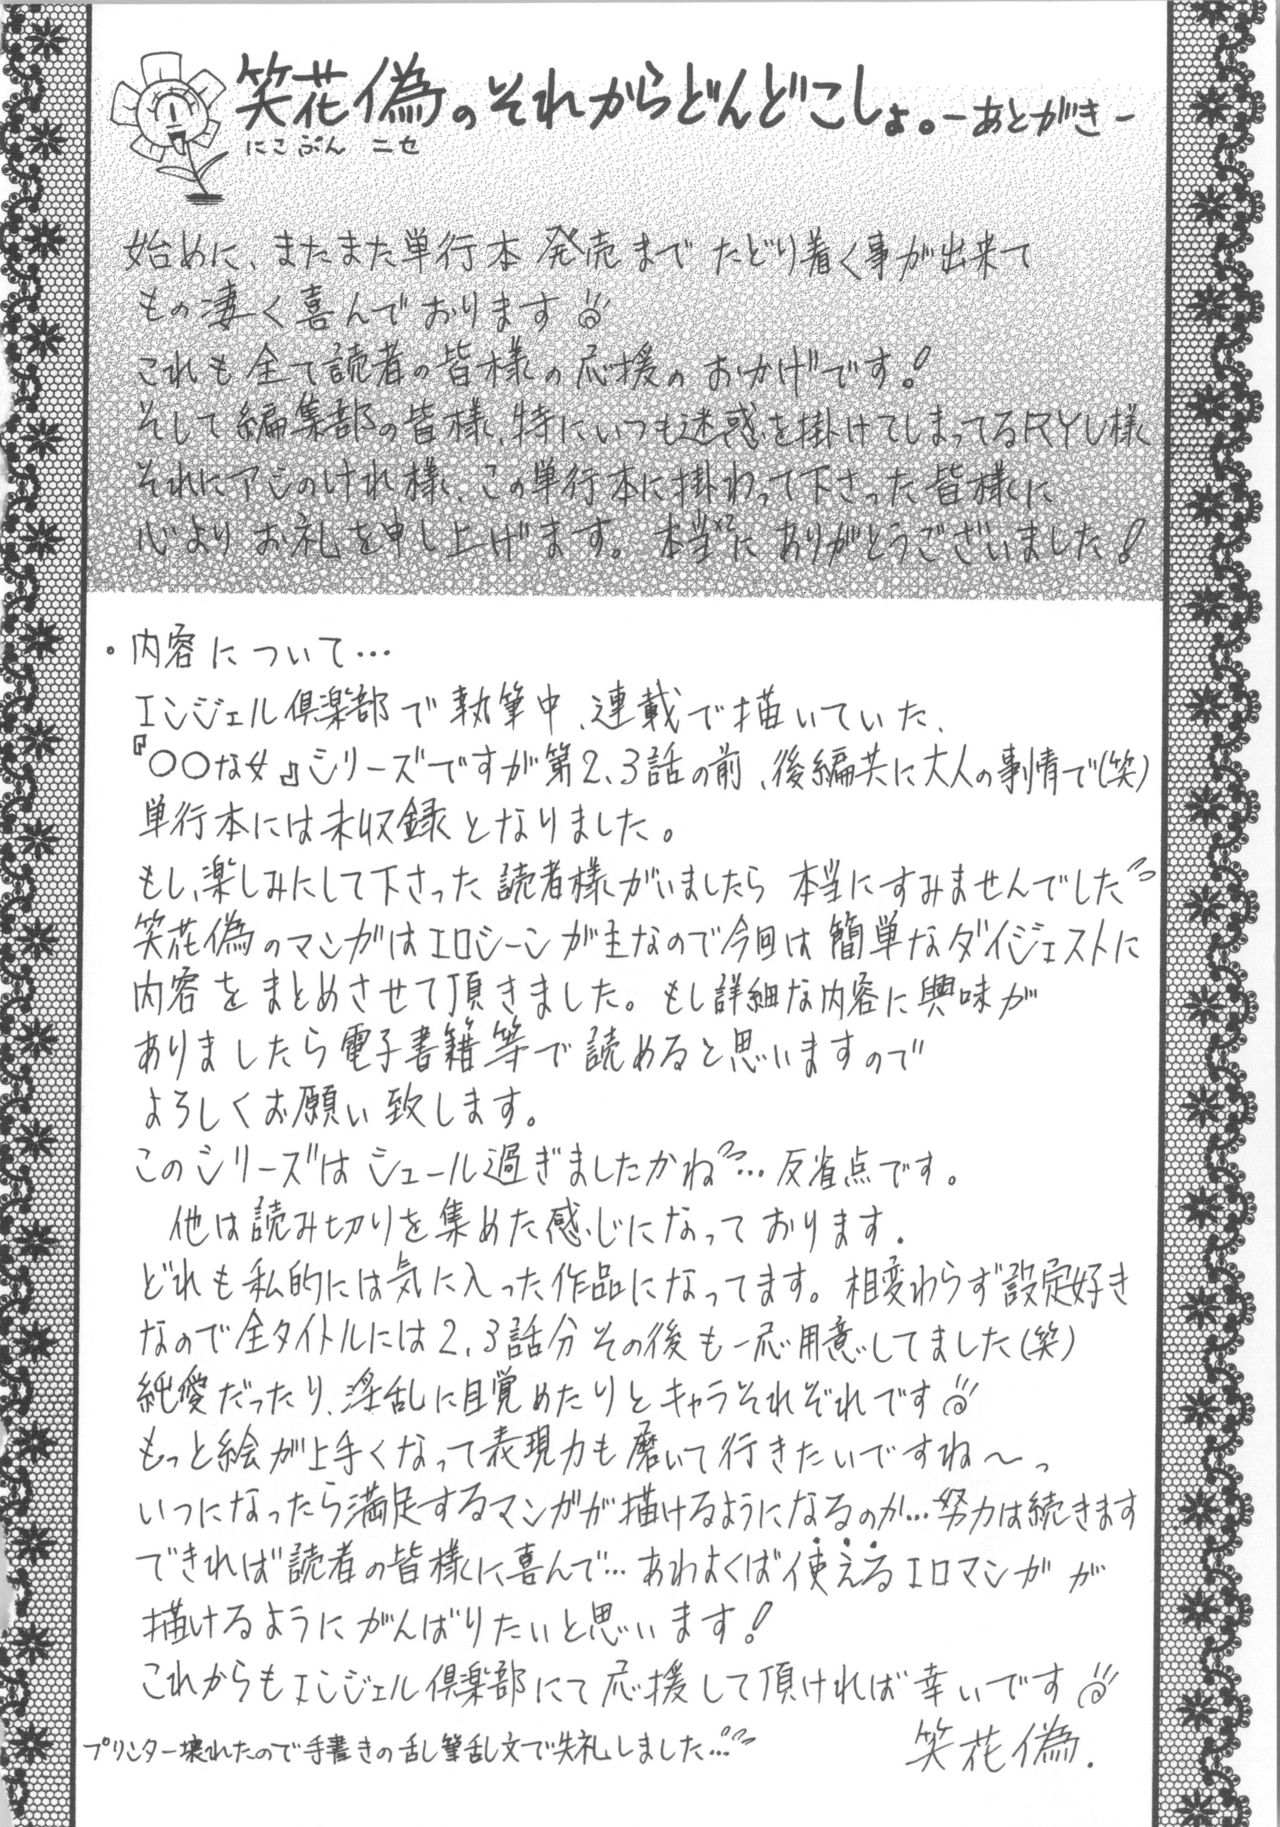 笑花偽のそれからどんどこしょ。-あとがき-
にこぷん　ニセ
始めに、またまた単行本発売までたどり着く事が出来て
もの凄く喜んでおります
これも全て読者の皆様の応援のおかげです!
そして編集部の皆様、特にいつも迷惑を掛けてしまってるRYU様
それにアシのけれ様、この単行本に掛わって下さった皆様に
心よりお礼を申し上げます。本当にありがとうございました!
・内容について…
エンジェル倶楽部で執筆中、連載で描いていた、
『〇〇な女』シリーズですが第2、3話の前、後編共に大人の事情で(笑)
単行本には未収録となりました。
もし、楽しみにして下さった読者様がいましたら本当にすみませんでした
笑花偽のマンガはエロシーンが主なので今回は簡単なダイジェストに
内容をまとめさせて頂きました。もし詳細な内容に興味が
ありましたら電子書籍等で読めると思いますので
よろしくお願い致します。
このシリーズはシュール過ぎましたかね…反省点です。
他は読み切りを集めた感じになっております.
どれも私的には気に入った作品になってます。相変わらず設定好き
なので全タイトルには2、3話分その後も一応用意してました(笑)
純愛だったり、淫乱に目覚めたりとキャラそれぞれです
もっと絵が上手くなって表現力も磨いて行きたいですね〜っ
いつになったら満足するマンガが描けるようになるのか…努力は続きます
できれば読者の皆様に喜んで…あわよくば使えるエロマンガが
描けるようにがんばりたいと思います!
これからもエンジェル倶楽部にて応援して頂ければ幸いです
笑花偽.
プリンター壊れたので手書きの乱筆乱文で失礼しました…